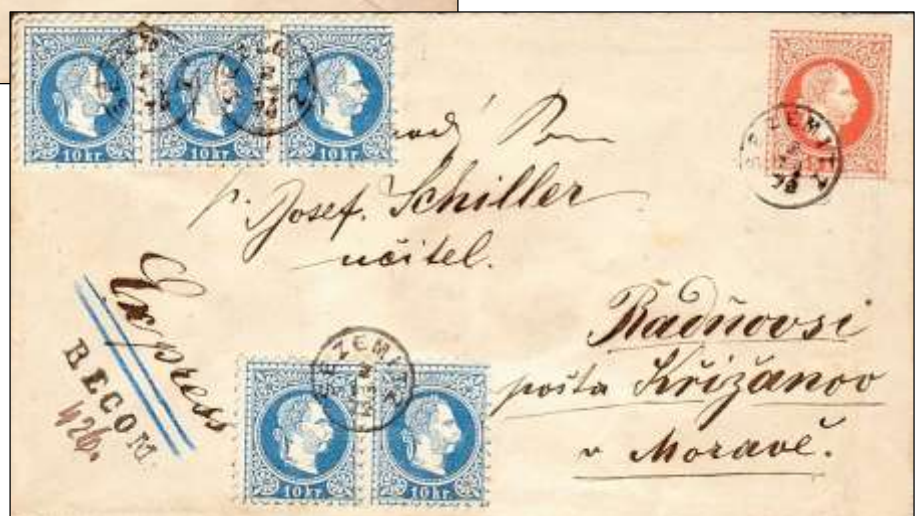 10 kr. 10 kr. 10 kr.
SEZEMITZ
Pan
p. Josef Schiller
učitel.
Express
RECOM.
426.
Radňovsi
pošta Křižanov
v Moravě.
SEZEMITZ
10 kr. 10 kr.